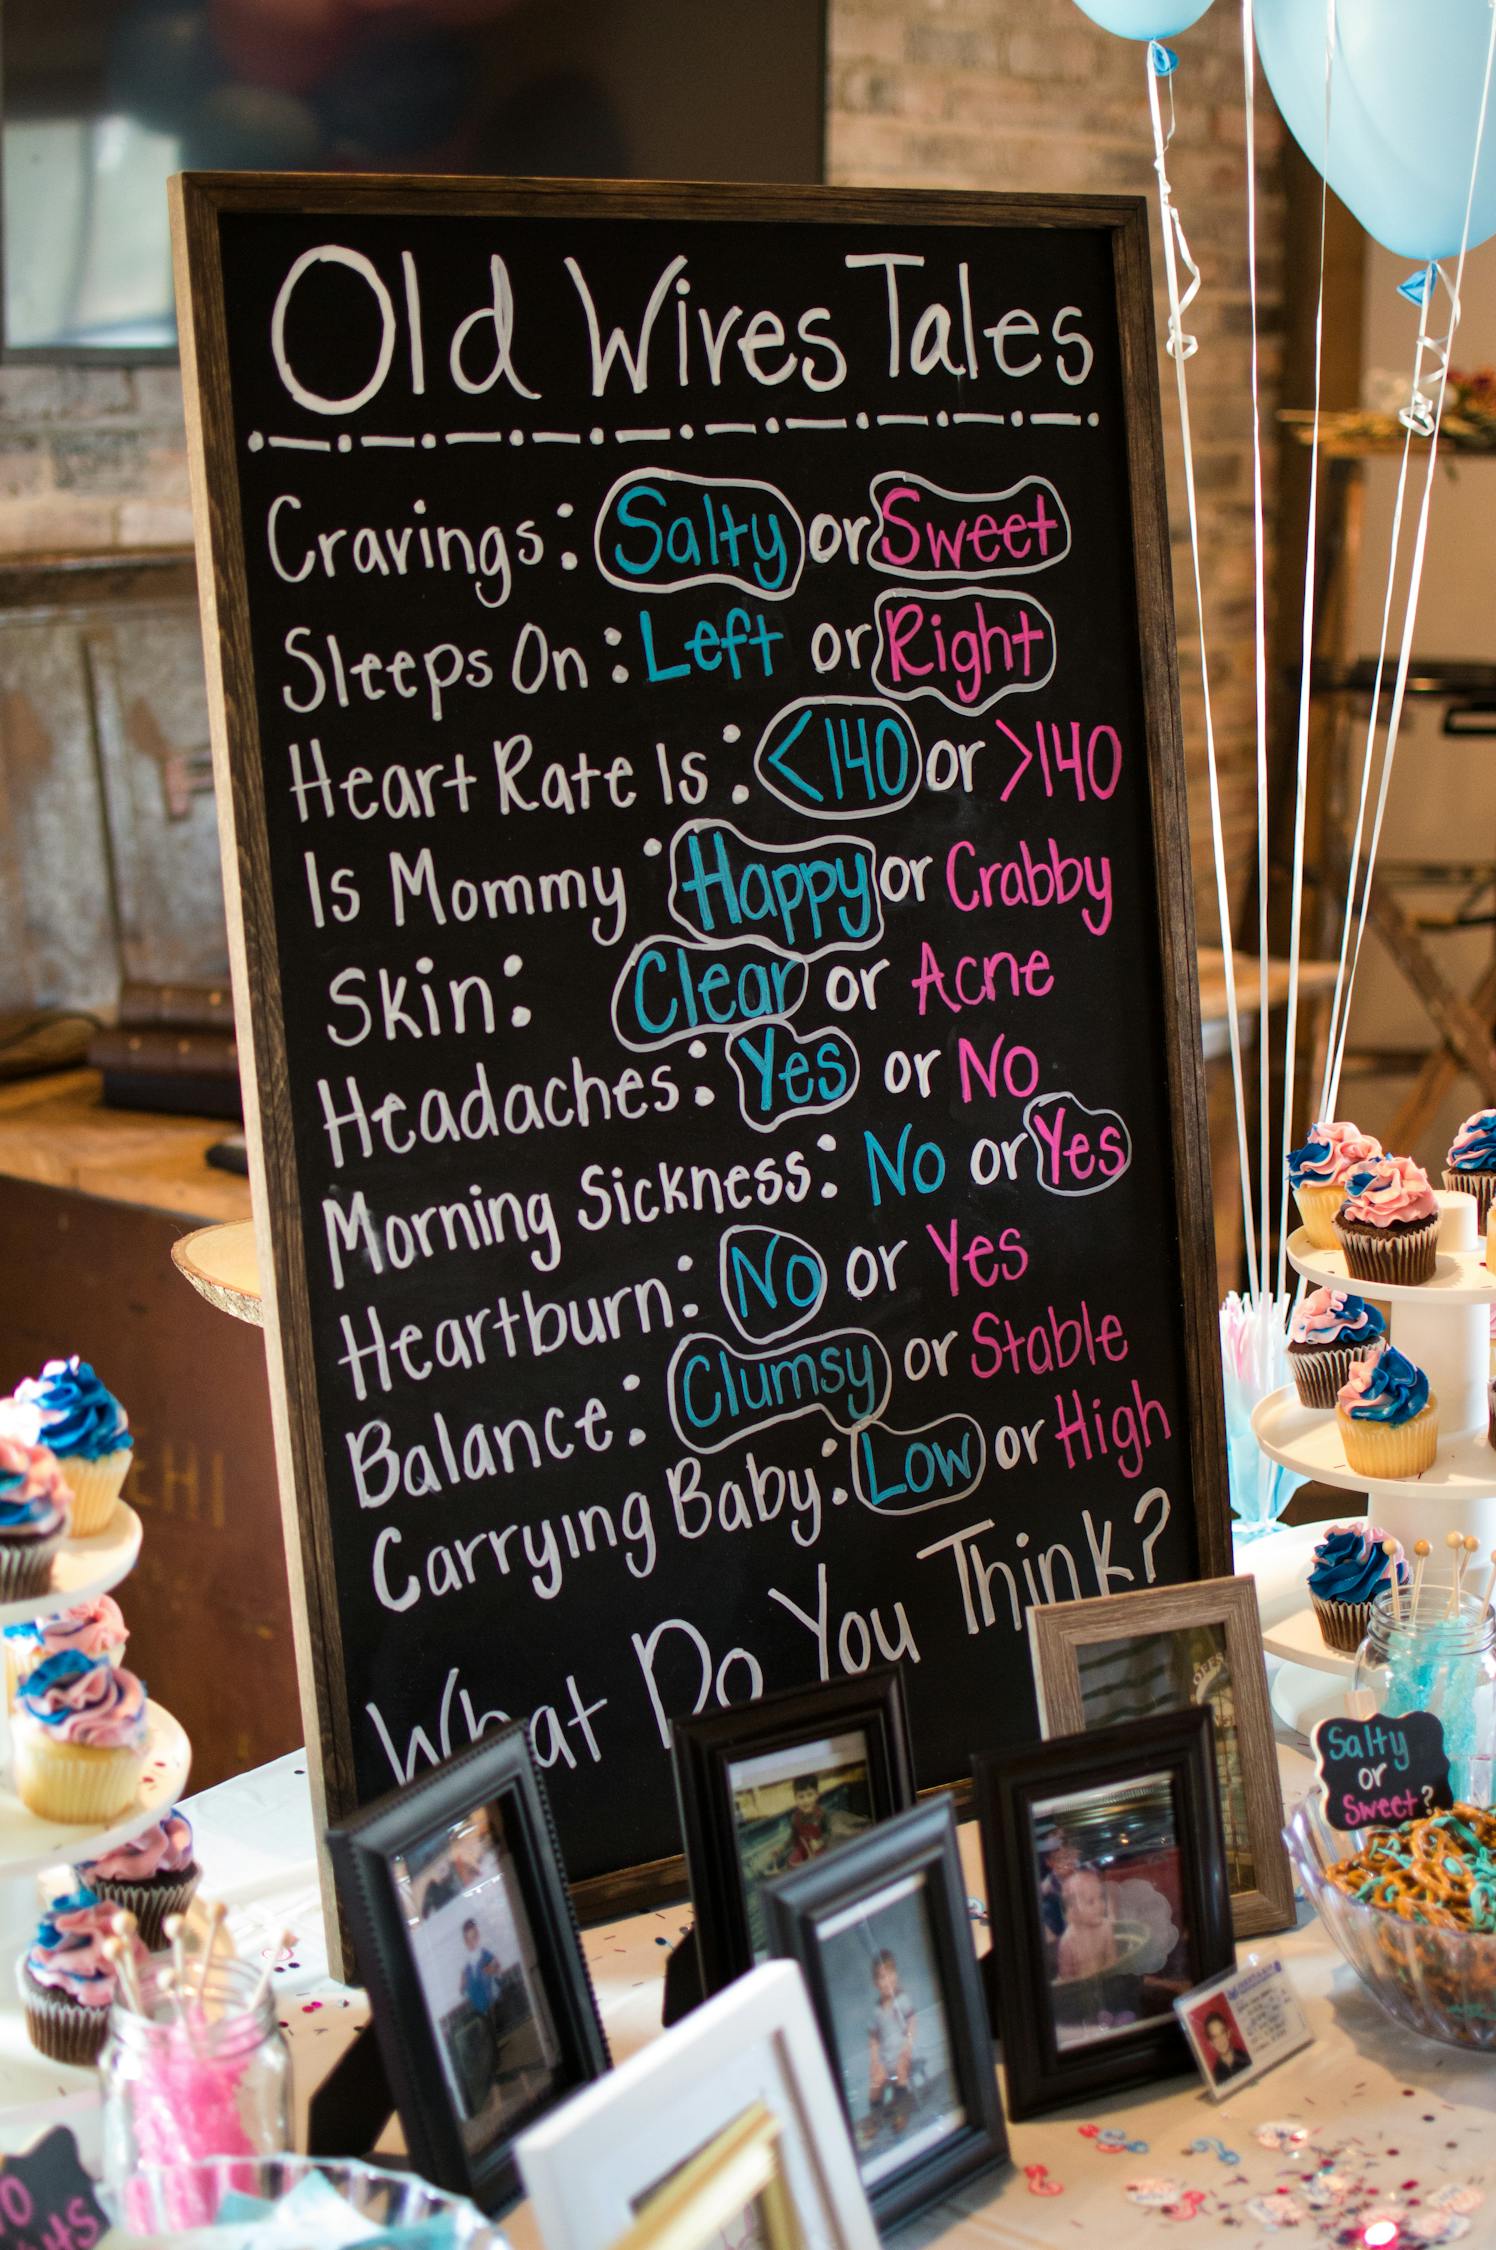 Old Wives Tales
Cravings: Salty or Sweet
Sleeps On: Left or Right
Heart Rate Is: <140 or >140
Is Mommy: Happy or Crabby
Skin: Clear or Acne
Headaches: Yes or No
Morning Sickness: No or Yes
Heartburn: No or Yes
Balance: Clumsy or Stable
Carrying Baby: Low or High
What Do You Think?
Salty
or
Sweet?